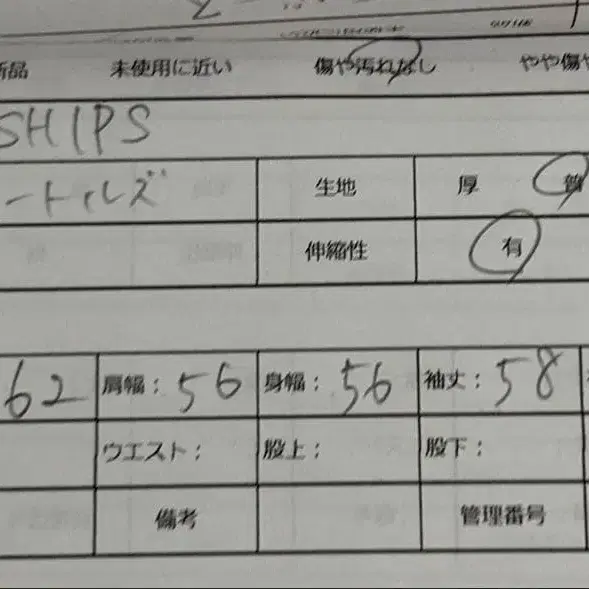 新品 未使用に近い 傷や汚れなし やや傷や
SHIPS
ートルズ 生地 厚
伸縮性 有
62 肩幅: 56 身幅: 56 袖丈: 58
ウエスト: 股上: 股下:
備考 管理番号